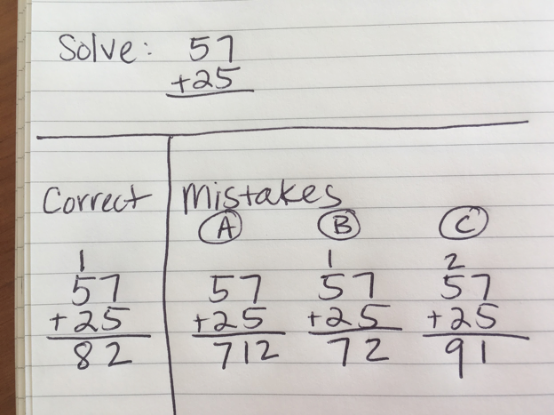 Solve: 57
+25
Correct Mistakes
A B C
1 1 2
57 57 57 57
+25 +25 +25 +25
82 712 72 91